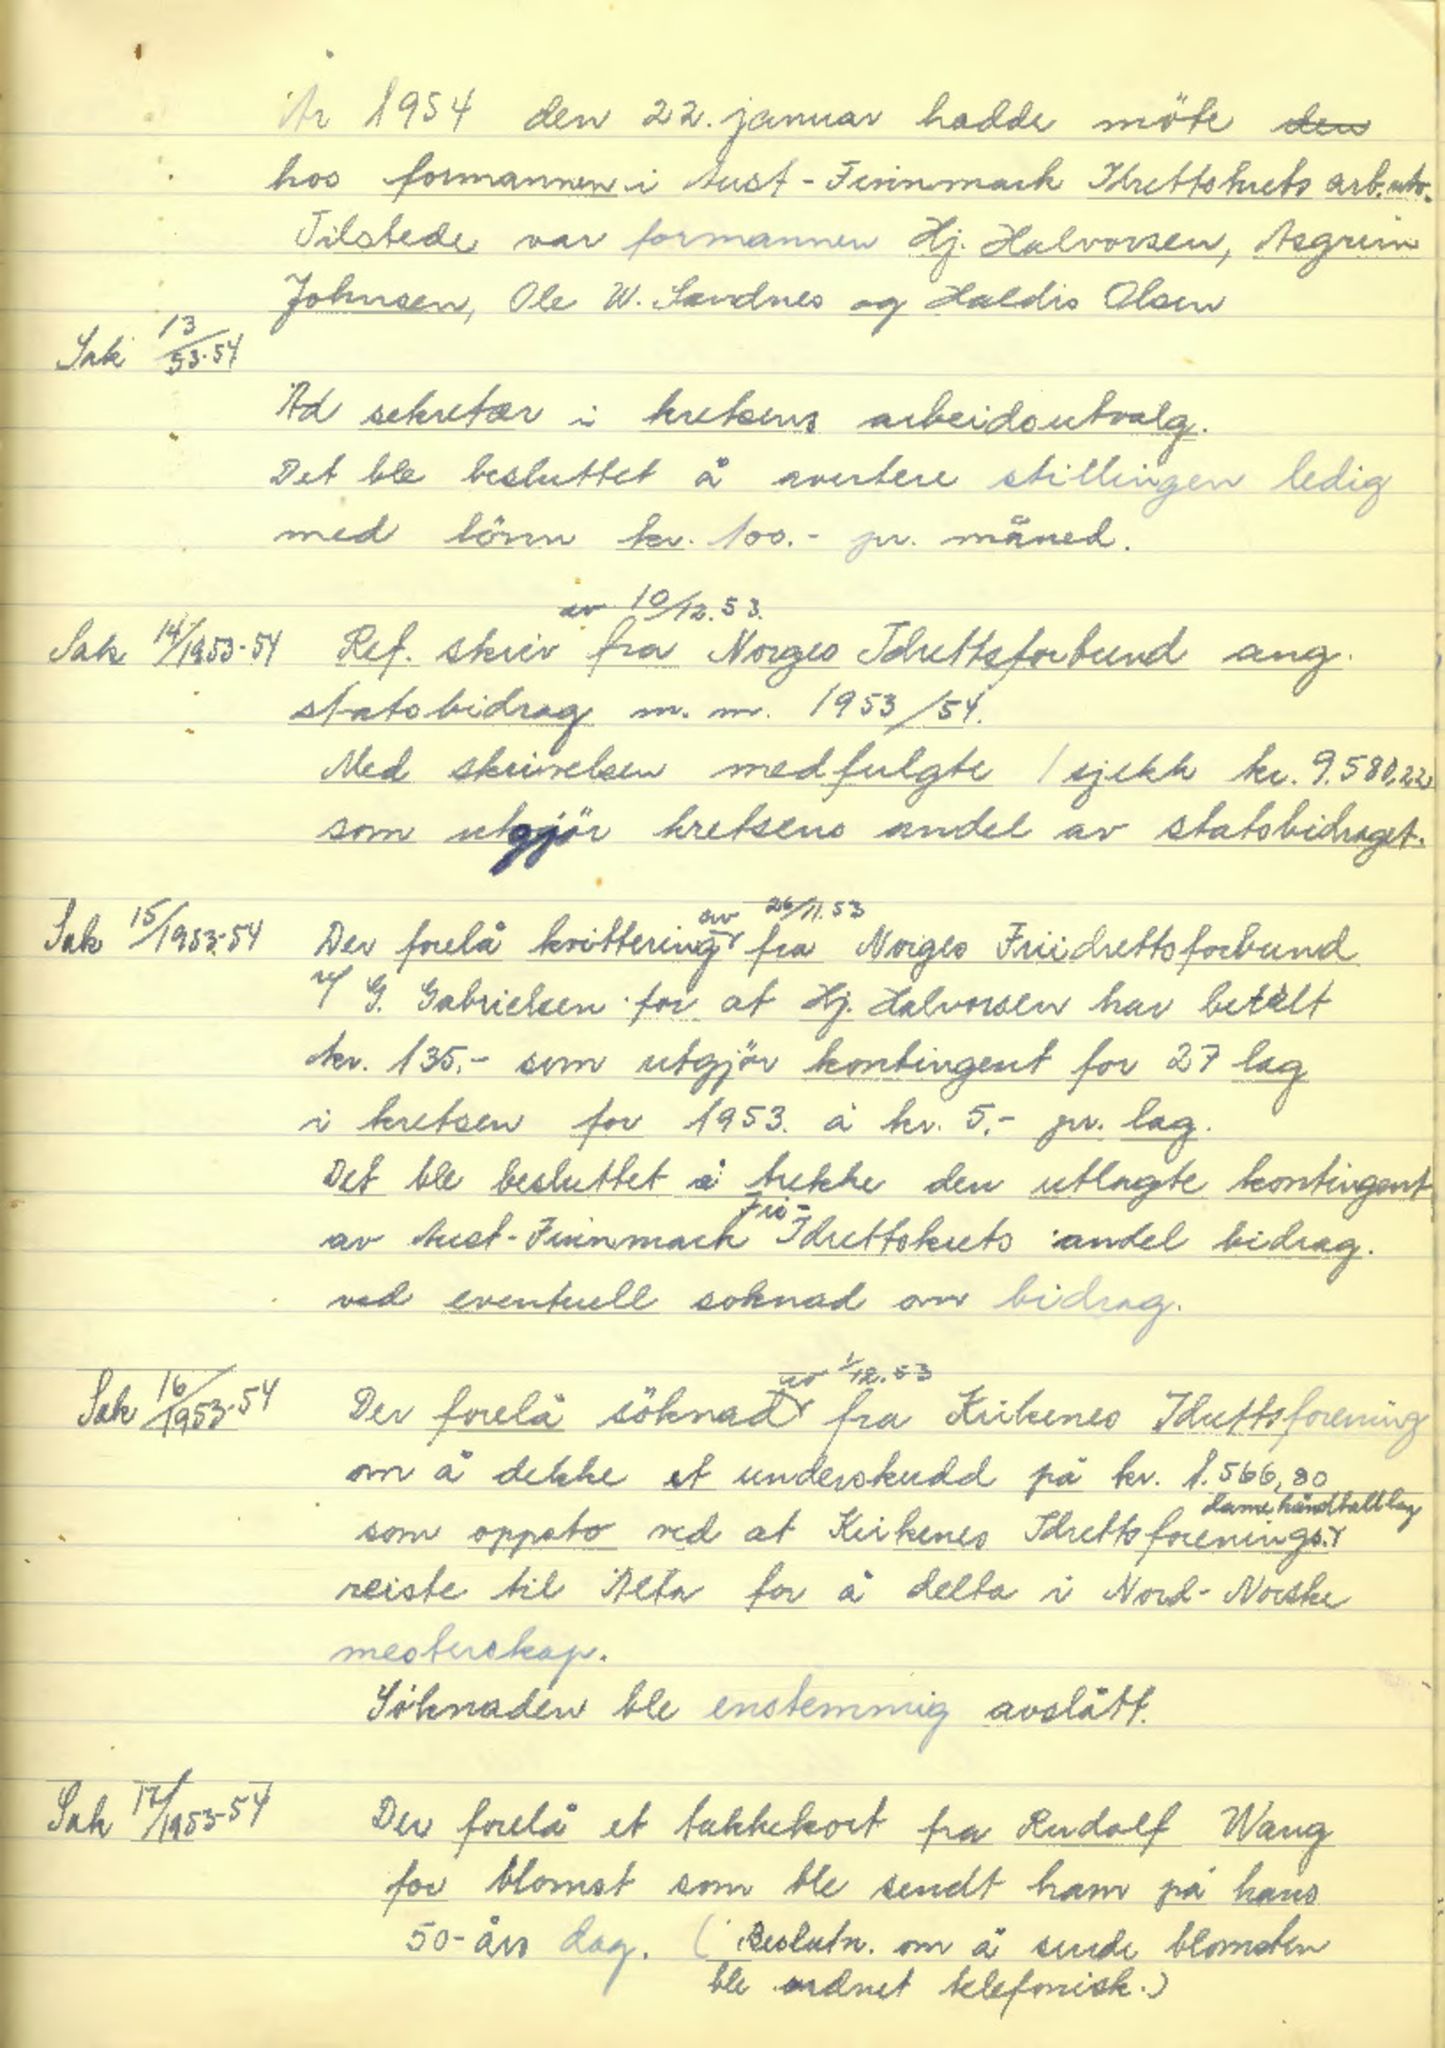 År 1954 den 22. januar hadde möte den
hos formannen i Aust-Finnmark Idrettskrets arb.utv.
Tilstede var formannen Hj. Halvorsen, Asgrim
Johnsen, Ole W. Sandnes og Haldis Olsen
Sak 13/53-54
Ad sekretær i kretsens arbeidsutvalg.
Det ble besluttet å avertere stillingen ledig
med lönn kr. 100.- pr. måned.
av 10/12.53.
Sak 14/1953-54 Ref. skriv fra Norges Idrettsforbund ang.
statsbidrag m.m. 1953/54.
Med skrivelsen medfulgte 1 sjekk kr. 9.580,22
som utgjör kretsens andel av statsbidraget.
av 26/11.53
Sak 15/1953-54 Der forelå kvittering fra Norges Friidrettsforbund
v/ G. Gabrielsen for at Hj. Halvorsen har betalt
kr. 135.- som utgjör kontingent for 27 lag
i kretsen for 1953. á kr. 5.- pr. lag.
Det ble besluttet å trekke den utlagte kontingent
Fri-
av Aust-Finnmark Idrettskrets andel bidrag.
ved eventuell soknad om bidrag.
av 1/12.53
Sak 16/1953-54 Der forelå söknad fra Kirkenes Idrettsforening
om å dekke et underskudd på kr. 1.566,80
damehåndballag
som oppsto ved at Kirkenes Idrettsforenings
reiste til Alta for å delta i Nord-Norske
mesterskap.
Söknaden ble enstemmig avslått.
Sak 17/1953-54 Der forelå et takkekort fra Rudolf Wang
for blomst som ble sendt ham på hans
50-års dag. (Beslutn. om å sende blomsten
ble ordnet telefonisk.)